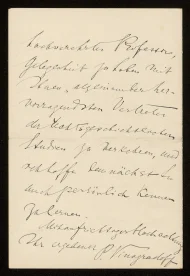 hochverehrter Professor,
Gelegenheit zu haben mit
Ihnen, als einem der her-
vorragendsten Vertreter
der Rechtsgeschichtlichen
Studien zu verkehren, und
hoffe Demnächst Sie
auch persönlich kennen
zu lernen.
Mit aufrichtiger Hochachtung
Ihr ergebener P. Vinogradoff